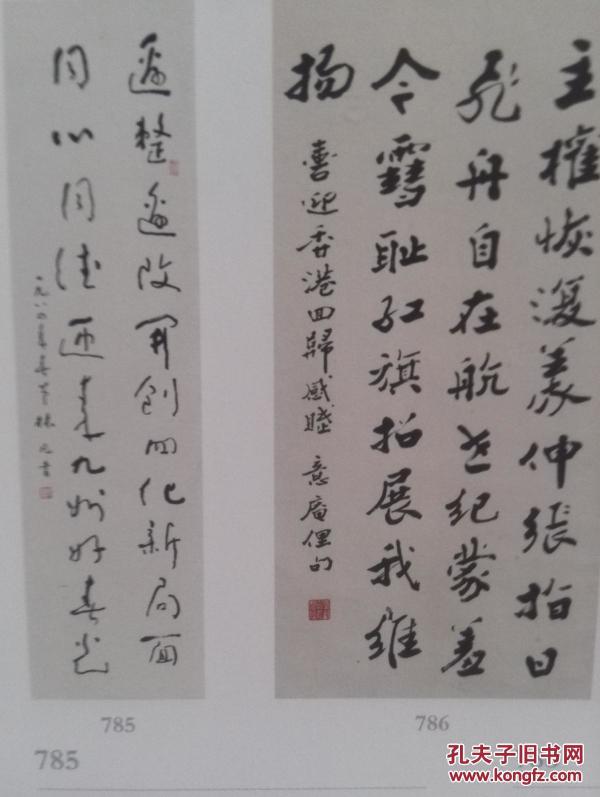 邊整邊改開創四化新局面
同心同德迎来九州好春光
一九八四年春节林元书
785
主權恢復義伸張指日
飛舟自在航世紀蒙羞
今雪耻红旗招展我維
扬
喜迎香港回歸感賦 意庵俚句
786
785
孔夫子旧书网
www.kongfz.com